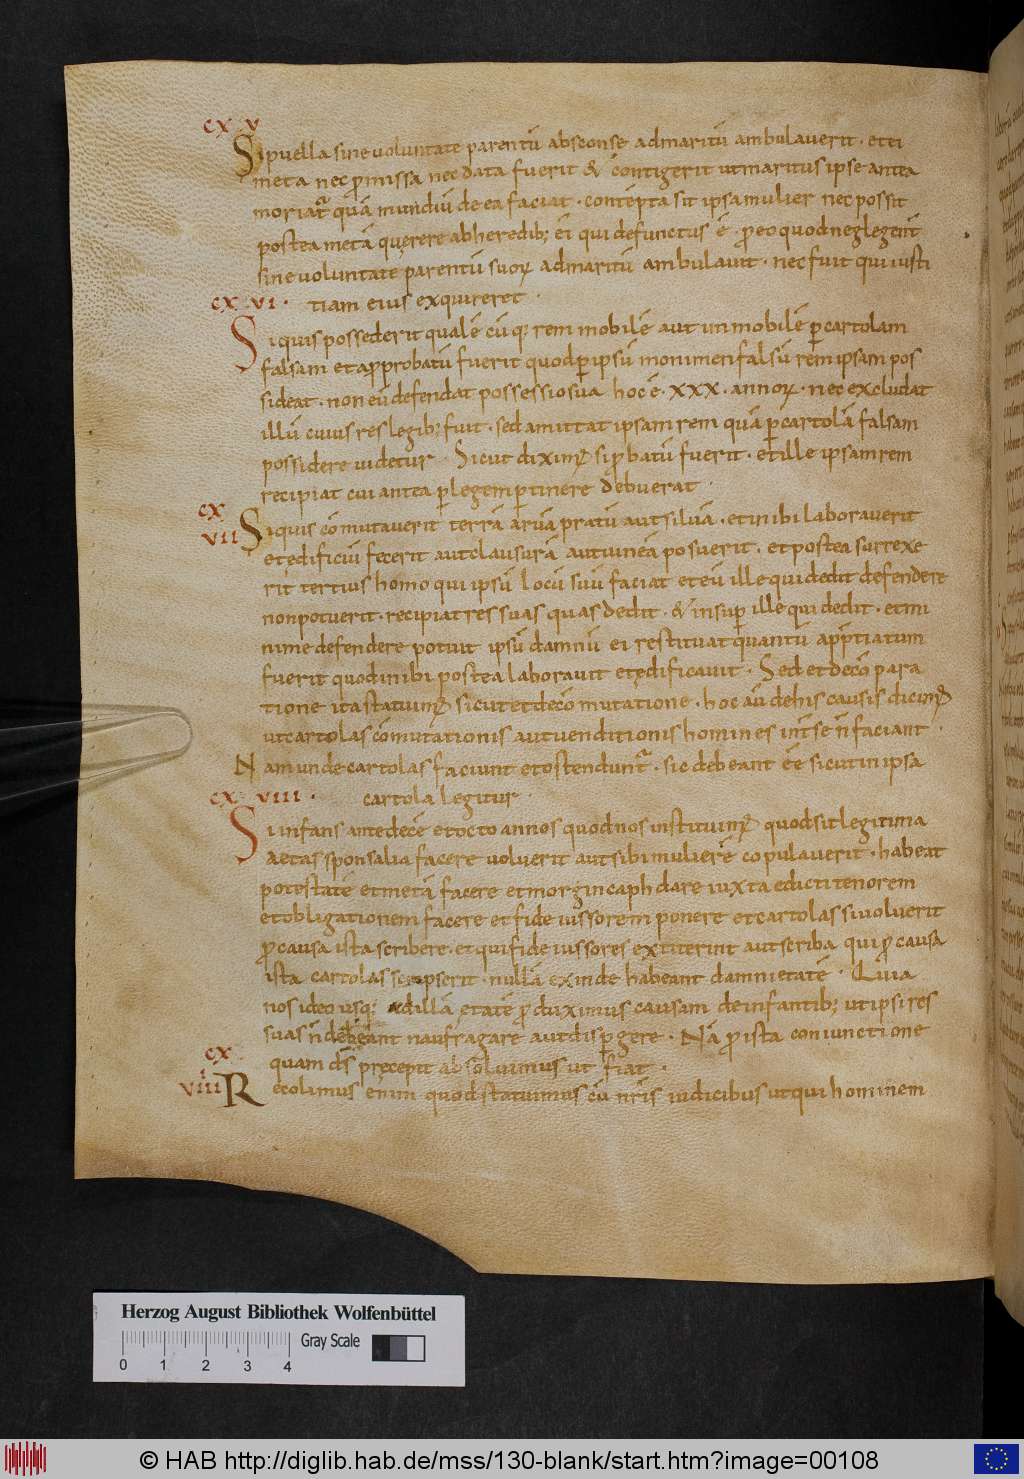 cx v
Si puella sine voluntate parentū absconse ad maritū ambulaverit · et ei
meta nec ꝓmissa nec data fuerit & contigerit ut maritus ipse antea
moriat᷑ quā mundiū de ea faciat · contēpta sit ipsa mulier nec possit
postea metā quęrere ab heredib; ei qui defunctus ē · ꝓ eo quod neglegent̄
sine voluntate parentū suoꝝ ad maritū ambulavit · nec fuit qui iusti
cx vi · tiam eius exquireret ·
Si quis possederit qualē cūq; rem mobilē aut inmobilē ꝑ cartolam
falsam et approbatū fuerit quod ꝑ ipsū monimen falsū rem ipsam pos
sideat · non eū defendat possessio sua hoc ē · xxx · annoꝝ · nec excludat
illū cuius res legib; fuit · sed amittat ipsam rem quā ꝑ cartolā falsam
possidere videtur · Sicut diximꝰ si ꝓbatū fuerit · et ille ipsam rem
recipiat cui antea ꝑ legem ꝑtinere debuerat ·
cx
vii
Si quis cōmutaverit terrā arvā pratū aut silvā · et in ibi laboraverit
et edificiū fecerit aut clausurā aut vineā posuerit · et postea surrexe
rit tertius homo qui ipsū locū suū faciat et eū ille qui dedit defendere
non potuerit · recipiat res suas quas dedit · & insuꝑ ille qui dedit · et mi
nime defendere potuit ipsū damnū ei restituat quantū app̄tiatum
fuerit quod in ibi postea laboravit et ędificavit · Sed et de cō para
tione ita statuimꝰ sicut et de cō mutatione · hoc aū de his causis dicimꝰ
ut cartolas cōmutationis aut venditionis homines int̄ se n̄ faciant ·
Nam unde cartolas faciunt et ostendunt᷑ · sic debeant ēē sicut in ipsa
cx viii · cartola legitur ·
Si infans ante decē et octo annos quod nos instituimꝰ quod sit legitima
aetas sponsalia facere voluerit aut sibi mulierē copulaverit · habeat
potestatē et metā facere et morgincaph dare iuxta edicti tenorem
et obligationem facere et fideiussorem ponere et cartolas si voluerit
ꝓ causa ista scribere · et qui fideiussores extiterint aut scriba qui ꝓ causa
ista cartolas scripserit · nullā exinde habeant damnietatē · Quia
nos ideo usq; ad illā ętatē ꝓduximus causam de infantib; ut ipsi res
suas n̄ debeant naufragare aut disꝑgere · Nā ꝓ ista coniunctione
quam ds̄ pręcepit absolvimus ut fiat ·
cx
viiii
Recolimus enim quod statuimus cū nr̄is iudicibus ut qui hominem
Herzog August Bibliothek Wolfenbüttel
Gray Scale
0 1 2 3 4
© HAB http://diglib.hab.de/mss/130-blank/start.htm?image=00108